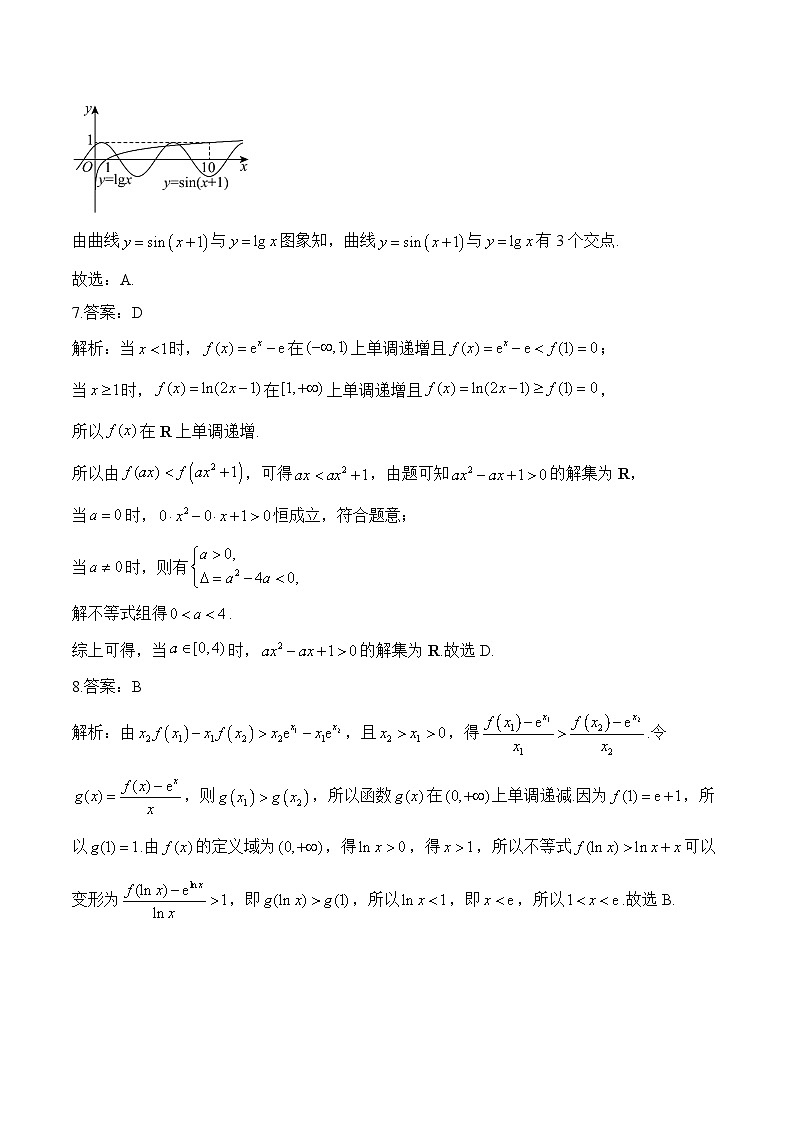 y
1
O 1 10 x
y=lgx y=sin(x+1)
由曲线y=sin(x+1)与y=lg x图象知，曲线y=sin(x+1)与y=lg x有3个交点.
故选：A.
7.答案：D
解析：当x<1时，f(x)=eˣ−e在(−∞,1)上单调递增且f(x)=eˣ−e<f(1)=0；
当x≥1时，f(x)=ln(2x−1)在[1,+∞)上单调递增且f(x)=ln(2x−1)≥f(1)=0，
所以f(x)在R上单调递增.
所以由f(ax)<f(ax²+1)，可得ax<ax²+1，由题可知ax²−ax+1>0的解集为R，
当a=0时，0·x²−0·x+1>0恒成立，符合题意；
当a≠0时，则有{a>0, Δ=a²−4a<0,
解不等式组得0<a<4.
综上可得，当a∈[0,4)时，ax²−ax+1>0的解集为R.故选D.
8.答案：B
解析：由x₂f(x₁)−x₁f(x₂)>x₂e^{x₁}−x₁e^{x₂}，且x₂>x₁>0，得(f(x₁)−e^{x₁})/x₁>(f(x₂)−e^{x₂})/x₂.令
g(x)=(f(x)−eˣ)/x，则g(x₁)>g(x₂)，所以函数g(x)在(0,+∞)上单调递减.因为f(1)=e+1，所
以g(1)=1.由f(x)的定义域为(0,+∞)，得ln x>0，得x>1，所以不等式f(ln x)>ln x+x可以
变形为(f(ln x)−e^{ln x})/ln x>1，即g(ln x)>g(1)，所以ln x<1，即x<e，所以1<x<e.故选B.